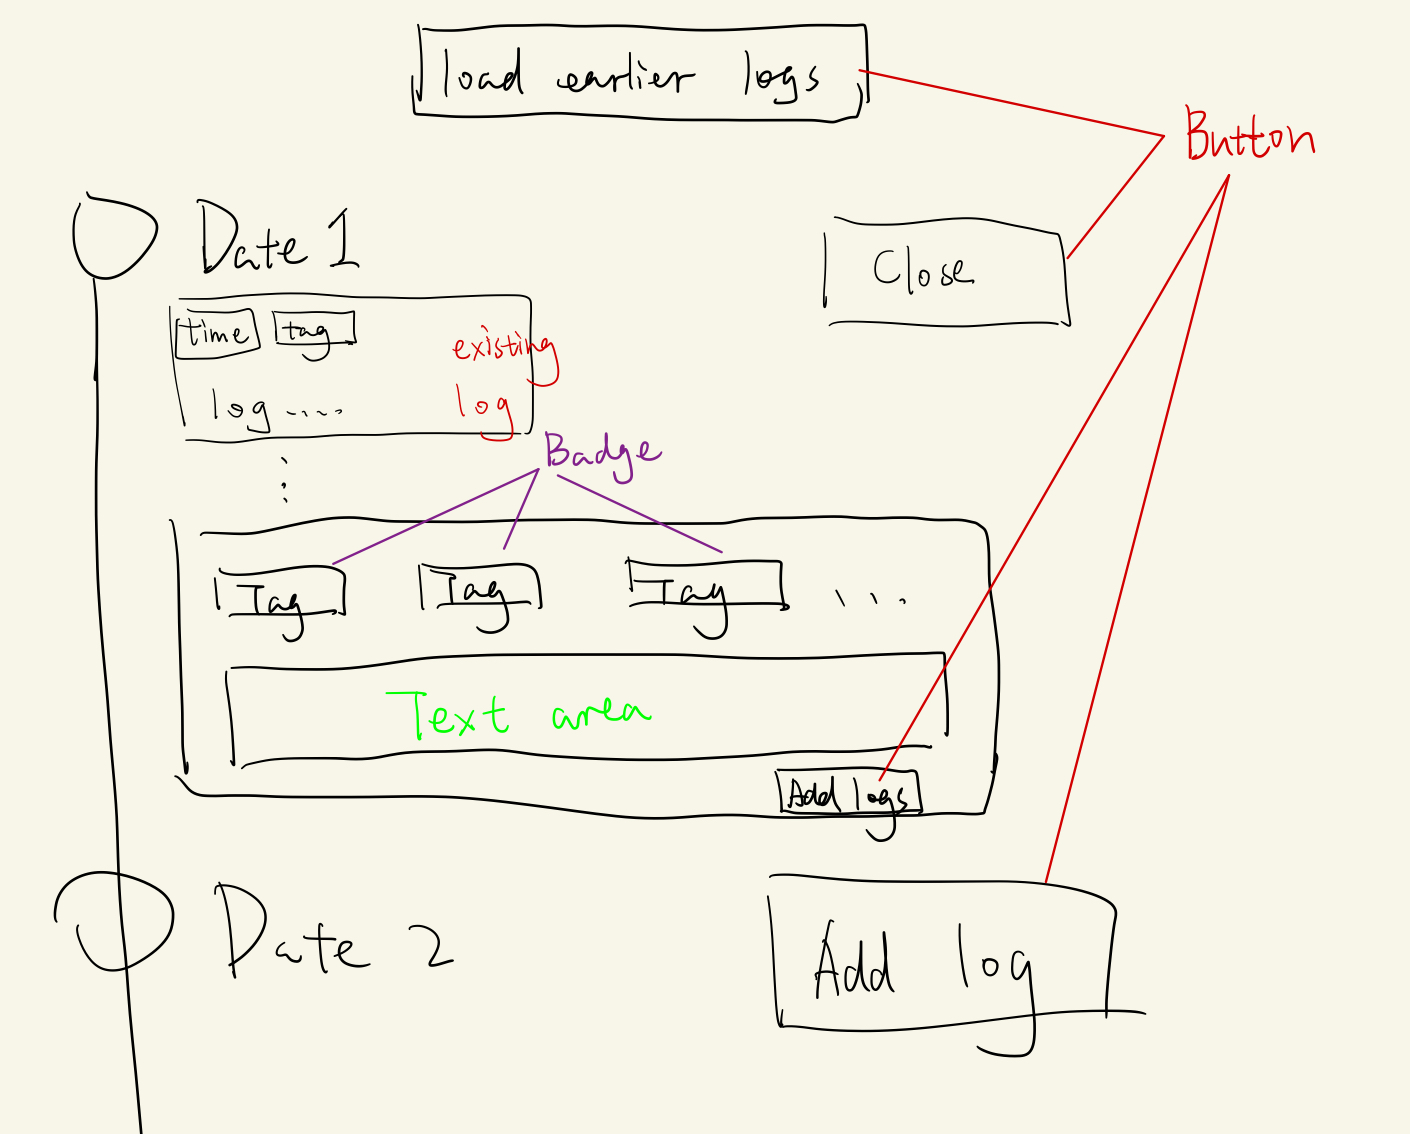 load earlier logs
Button
Date 1
Close
time tag existing
log ..... log
Badge
Tag Tag Tag ...
Text area
Add logs
Date 2
Add log